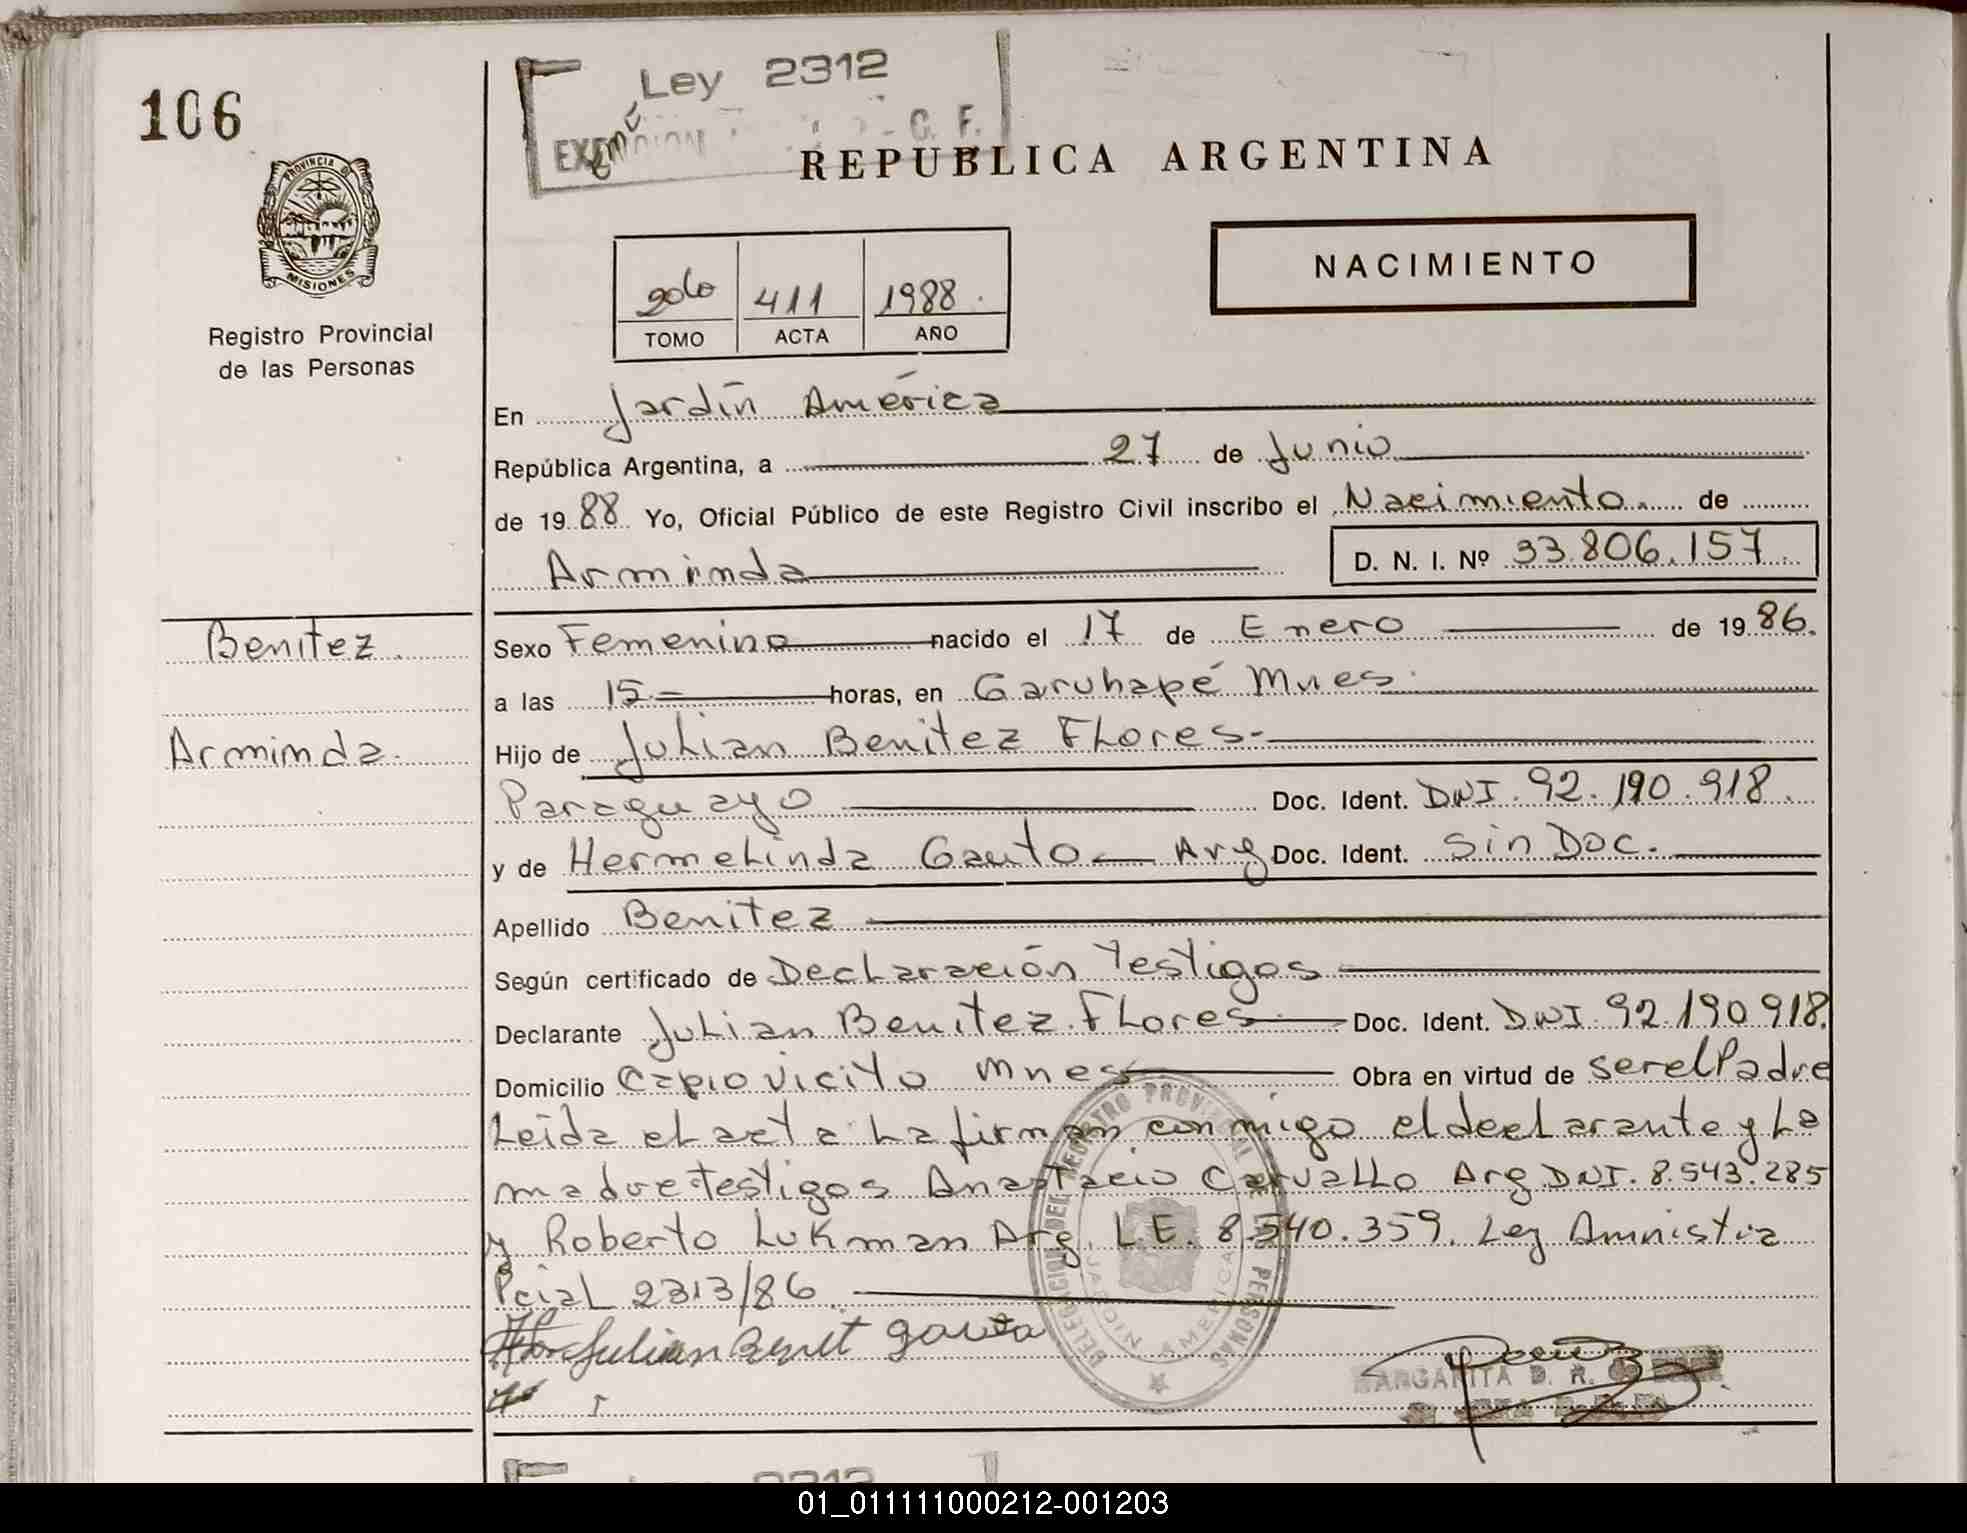 106
Ley 2312
EXENCION C. F.
REPUBLICA ARGENTINA
PROVINCIA DE
MISIONES
NACIMIENTO
2do 411 1988.
TOMO ACTA AÑO
Registro Provincial
de las Personas
En Jardín América
República Argentina, a 27 de Junio
de 1988 Yo, Oficial Público de este Registro Civil inscribo el Nacimiento de
Arminda D. N. I. Nº 33.806.157
Benitez Sexo Femenino nacido el 17 de Enero de 1986.
a las 15 horas, en Garuhapé Mnes
Arminda. Hijo de Julian Benitez Flores
Paraguayo Doc. Ident. DNI. 92.190.918
y de Hermelinda Gauto Arg Doc. Ident. Sin Doc.
Apellido Benitez
Según certificado de Declaración testigos
Declarante Julian Benitez Flores Doc. Ident. DNI. 92.190.918.
Domicilio Capiovicito Mnes Obra en virtud de ser el Padre
Leida el acta la firman conmigo el declarante y la
madre testigos Anastacio Carvallo Arg DNI. 8.543.285
y Roberto Lukman Arg. L.E. 8.540.359. Ley Amnistia
Pcial 2313/86
Julian Benit gauto
DELEGACION DEL REGISTRO PROVINCIAL DE LAS PERSONAS
JARDIN AMERICA
MARGARITA D. R.
2313
01_011111000212-001203